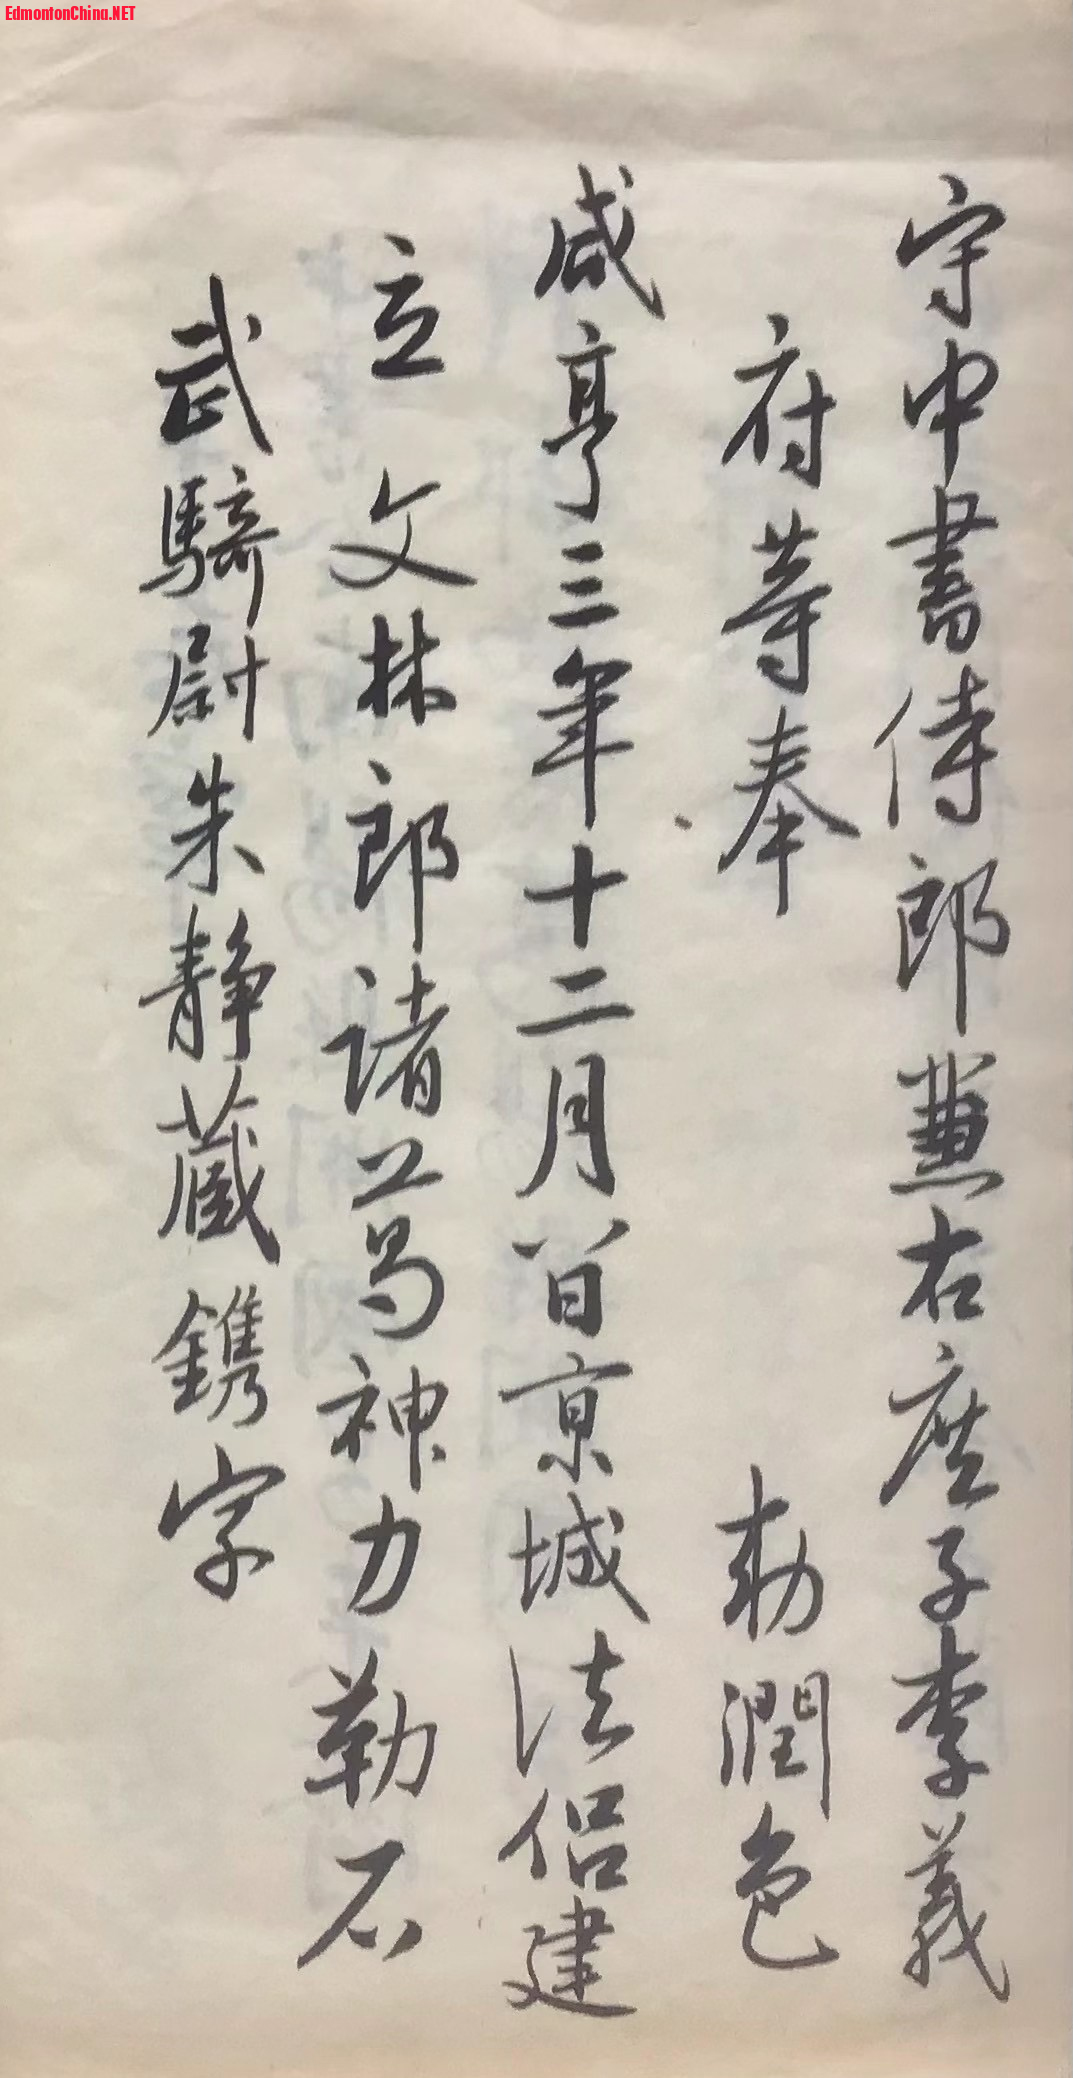 EdmontonChina.NET
守中書侍郎兼右庶子李義
府等奉 勅潤色
咸亨三年十二月八日京城法侣建
立 文林郎諸葛神力勒石
武騎尉朱静藏鐫字